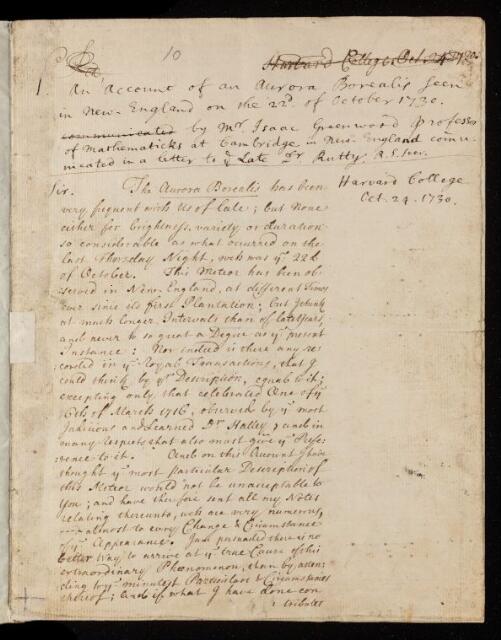 10
Harvard College Oct. 24. 1730.
An Account of an Aurora Borealis seen
in New-England on the 22d. of October 1730.
communicated by Mr. Isaac Greenwood Professor
of Mathematicks at Cambridge in New-England commu-
nicated in a letter to ye Late Dr Rutty R.S. Secr.
Harvard College
Oct. 24. 1730.
Sir. The Aurora Borealis has been
very frequent with Us of late; but None
either for brightness, variety or duration
so considerable as what occurred on the
last Thursday Night, wch was ye 22d
of October. This Meteor has been ob-
served in New-England, at different Times
ever since its first Plantation; but I think
at much longer Intervals than of late Years,
and never to so great a Degree as ye present
Instance: Nor indeed is there any re-
corded in ye Royal Transactions, that I
could think by ye Description, equal to it;
excepting only, that celebrated One of ye
6th of March 1716, observed by ye most
Judicious and Learned Dr Halley; and in
many Respects that also must give ye Prefe-
rence to it. And on this Account I have
thought ye most particular Description of
this Meteor would not be unacceptable to
You; and have therefore sent all my Notes
relating thereunto, wch are very numerous,
almost to every Change & Circumstance
Appearance. I am persuaded there is no
better Way to arrive at ye true Cause of this
extraordinary Phenomenon, than by atten-
ding to ye minutest Particulars & Circumstances
thereof; And if what I have done con-
tributes